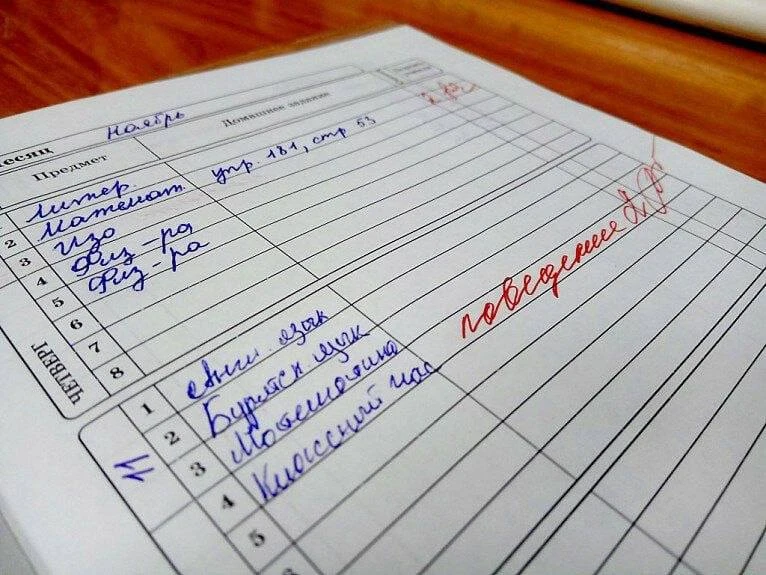 месяц ноябрь
Предмет Домашнее задание
1 Литер.
2 Математ. упр. 181, стр 53 2
3 Изо
4 Физ-ра
5 Физ-ра
6
7
8
ЧЕТВЕРГ
11
1 Англ. язык
2 Бурятск. язык
3 Математика
4 Классный час
5
поведение 2